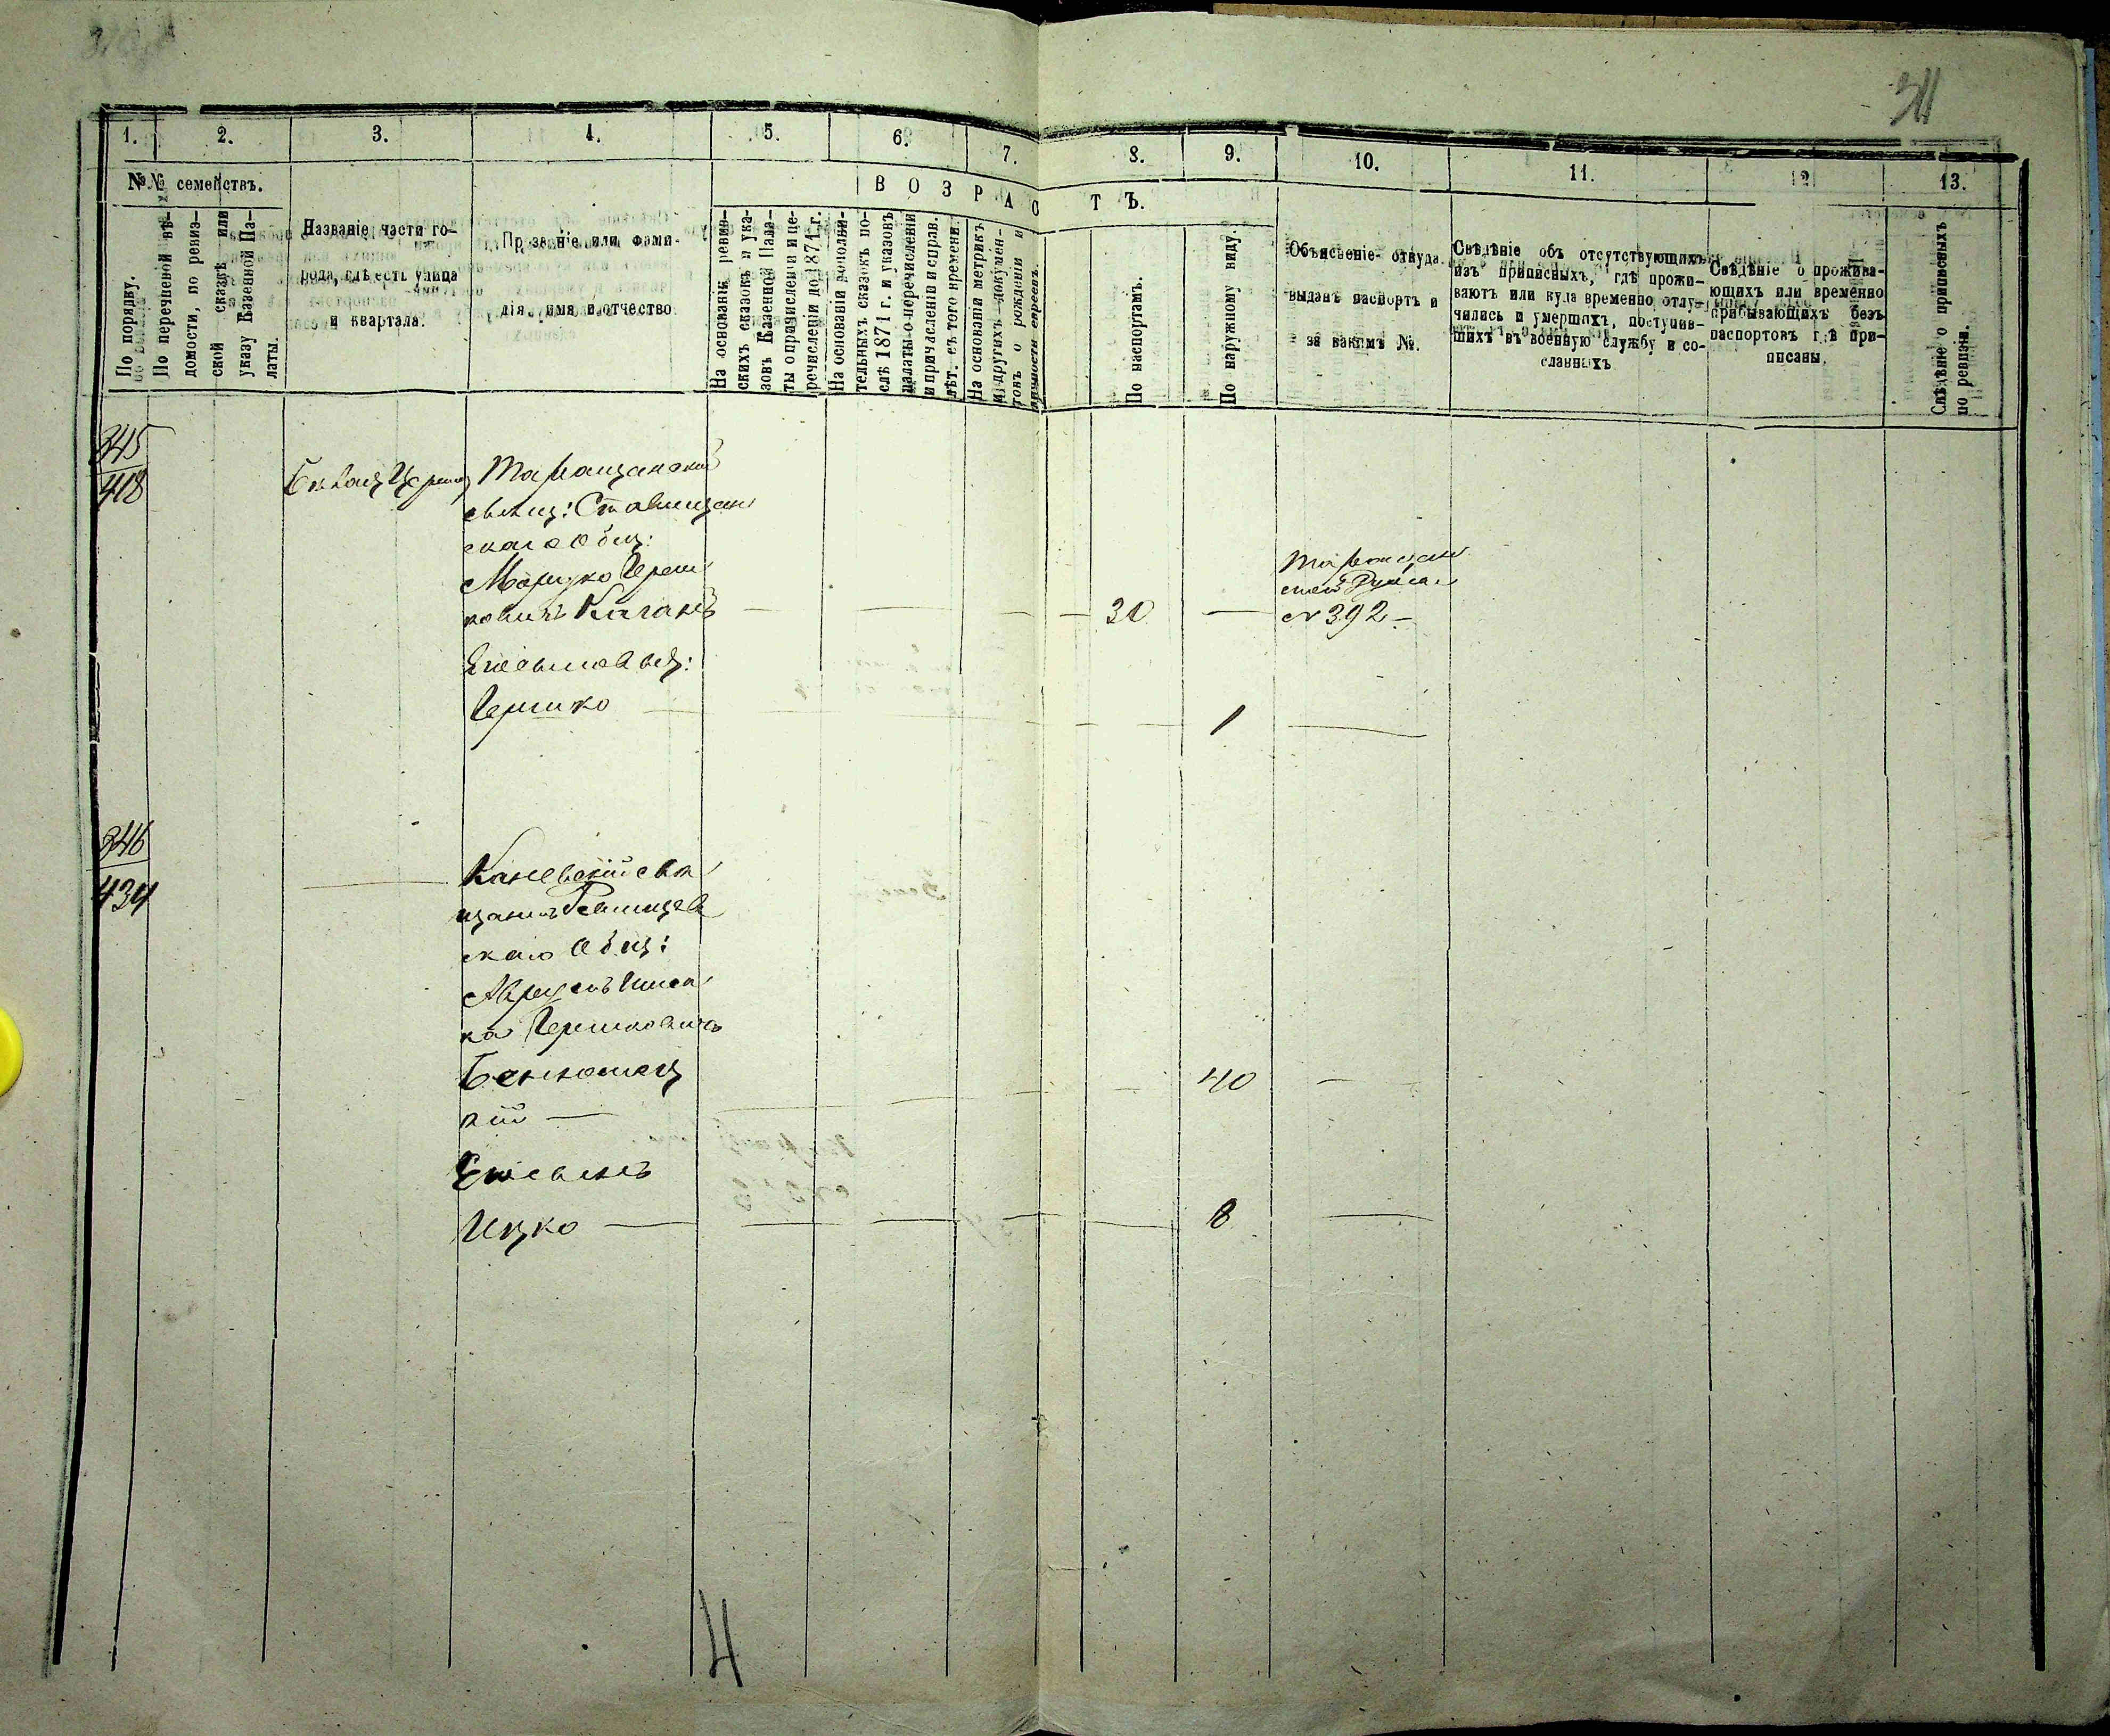 341
1. 2. 3. 4. 5. 6. 7. 8. 9. 10. 11. 12. 13.
№№ семействъ.
ВОЗРАСТЪ.
По порядку.
По перечневой вѣ-
домости, по ревиз-
ской сказкѣ или
указу Казенной Па-
латы.
Названіе части го-
рода, гдѣ есть улица
и квартала.
Прозваніе или фами-
лія, имя и отчество
На основаніи ревиз-
скихъ сказокъ и ука-
зовъ Казенной Пала-
ты о причисленіи и пе-
речисленіи до 1871 г.
На основаніи дополни-
тельныхъ сказокъ по-
слѣ 1871 г. и указовъ
палаты о перечисленіи
и причисленіи и справ.
лѣт. съ того времени.
На основаніи метрикъ
и другихъ докумен-
товъ о рожденіи и
личности евреевъ.
По паспортамъ.
По наружному виду.
Объясненіе откуда
выданъ паспортъ и
за какимъ №.
Свѣдѣніе объ отсутствующихъ
изъ приписныхъ, гдѣ прожи-
ваютъ или куда временно отлу-
чились и умершихъ, поступив-
шихъ въ военную службу и со-
сланныхъ
Свѣдѣніе о прожива-
ющихъ или временно
прибывающихъ безъ
паспортовъ гдѣ при-
писаны.
Свѣдѣніе о приписныхъ
по ревизіи.
345
418
Таращанскій
мѣщ: Ставищан
скаго Общ:
Мошко Герш
ковичъ Каганъ — — — — 30 —
Таращан
ской Думы
№ 392 —
Гершко — — — — 1 —
346
434
— Каневскій мѣ
щанинъ
скаго Общ:
Гершковичъ
кій — — — — 40 —
Ицко — — — — — 8 —
4